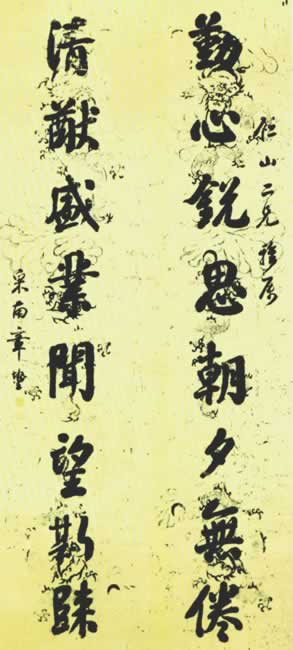 仁山二兄雅属
勤心銳思朝夕無倦
清猷盛業聞望斯
采南章鋆